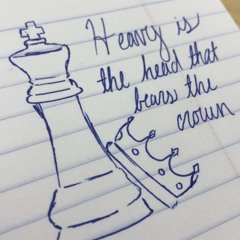 Heavy is
the head that
bears the
crown